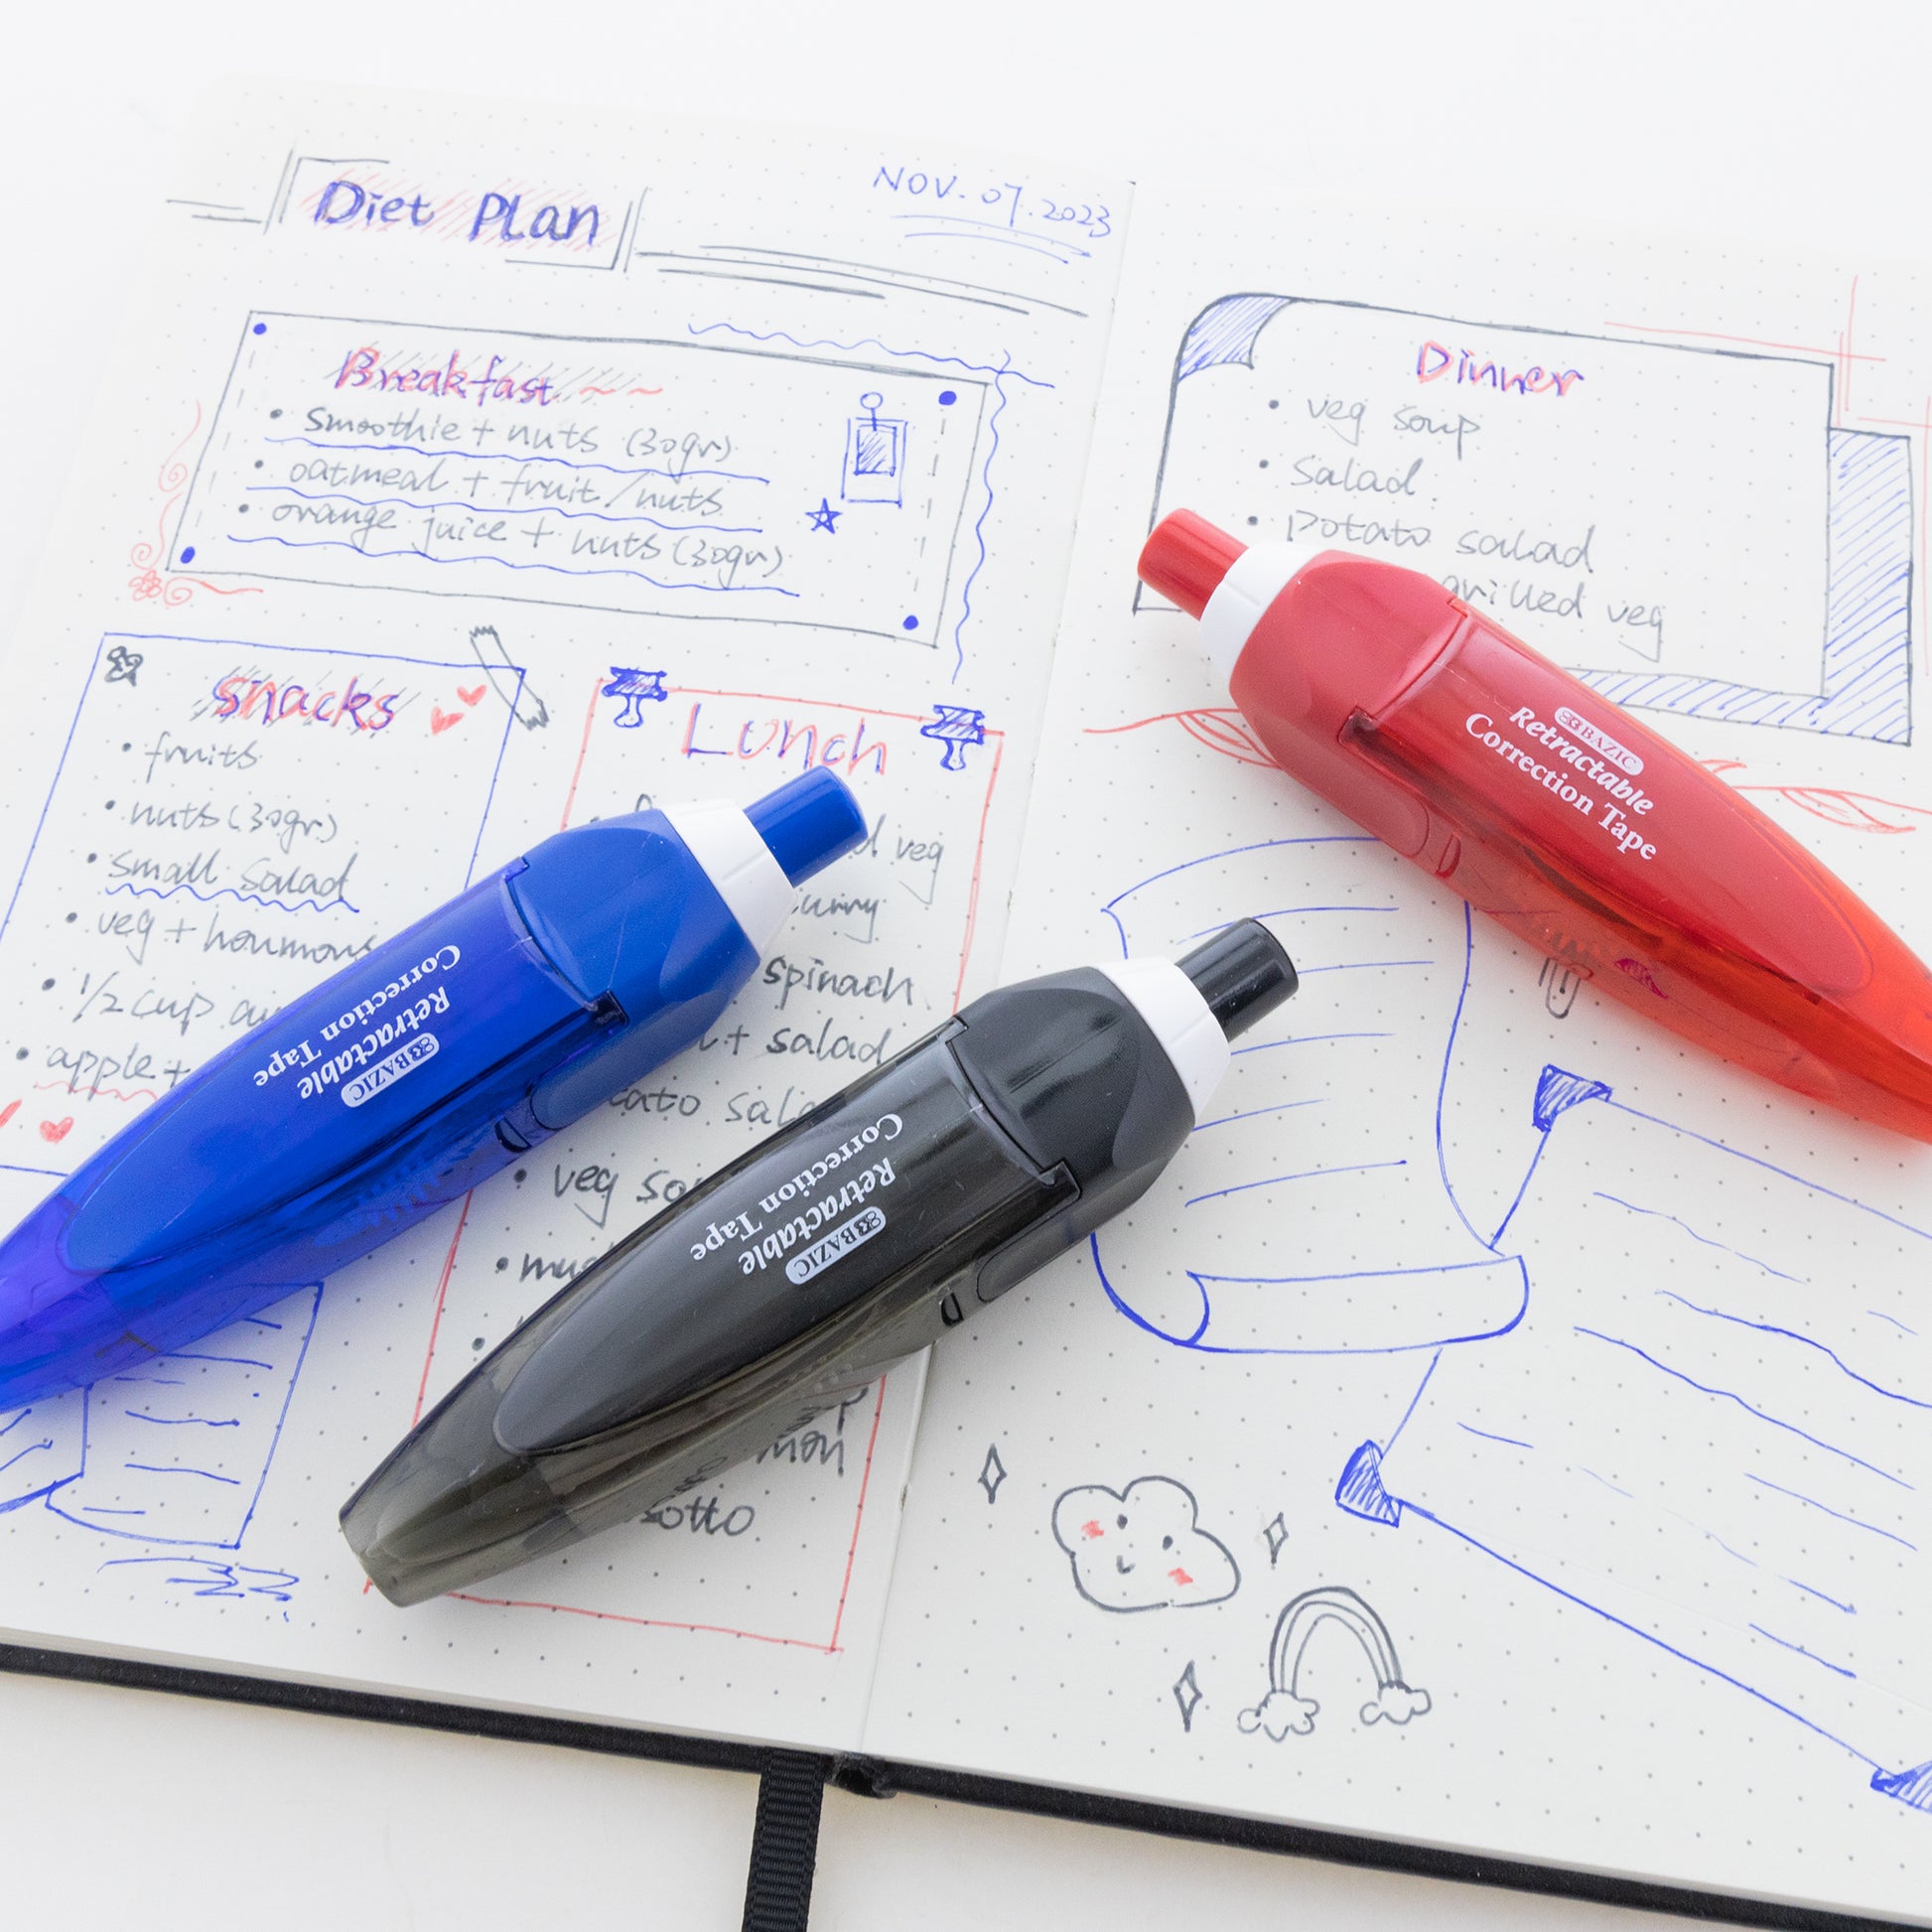 Diet Plan
NOV. 07. 2023
Breakfast ~ ~
• smoothie + nuts (30gr)
• oatmeal + fruit/nuts
• orange juice + nuts (30gr)
snacks
• fruits
• nuts (30gr)
• small salad
• veg + hommous
• 1/2 cup
• apple +
Lunch
veg
spinach
+ salad
• veg
Dinner
• veg soup
• salad.
• potato salad
grilled veg
BAZIC
Retractable
Correction Tape
BAZIC
Retractable
Correction Tape
BAZIC
Retractable
Correction Tape